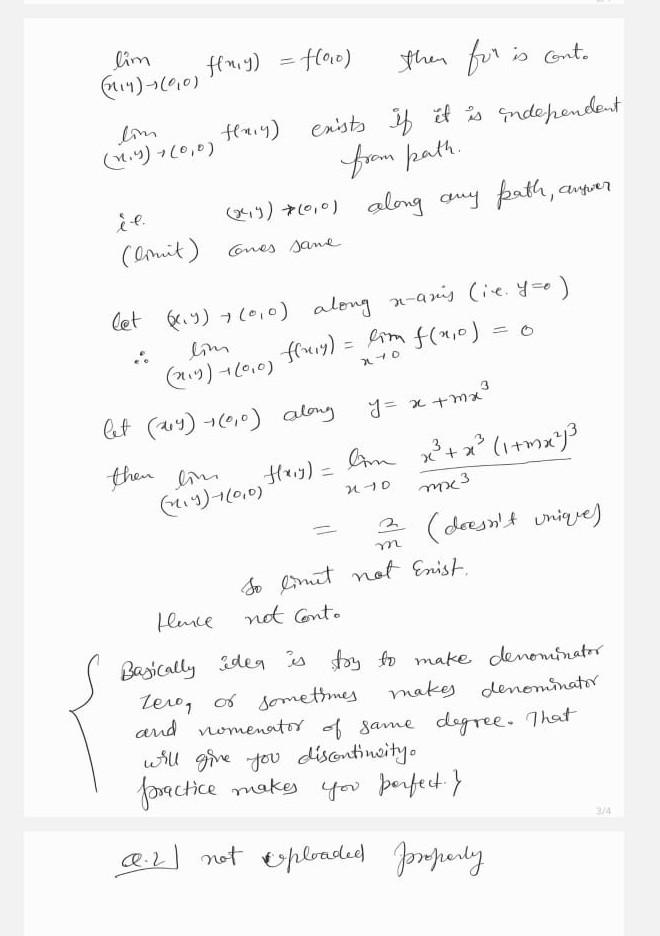 lim f(x,y) = f(0,0) then fun is cont.
(x,y)→(0,0)
lim f(x,y) exists if it is independent
(x,y)→(0,0) from path.
i.e. (x,y)→(0,0) along any path, answer
(limit) comes same
let (x,y)→(0,0) along x-axis (i.e. y=0)
∴ lim f(x,y) = lim f(x,0) = 0
(x,y)→(0,0) x→0
let (x,y)→(0,0) along y= x+mx³
then lim f(x,y) = lim x³+x³(1+mx²)³ / mx³
(x,y)→(0,0) x→0
= 2/m (doesn't unique)
So limit not Exist.
Hence not Cont.
{ Basically idea is try to make denominator
zero, or sometimes makes denominator
and nomenator of same degree. That
will give you discontinuity.
practice makes you perfect. }
3/4
Q.2] not uploaded properly